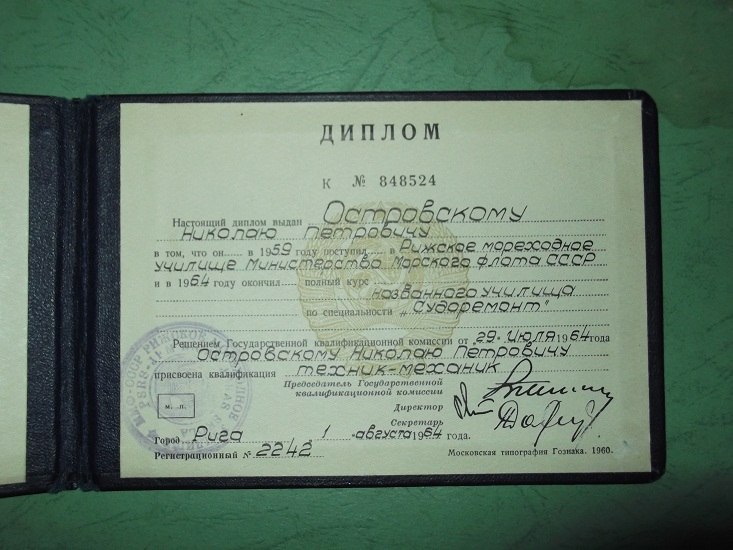 ДИПЛОМ
К № 848524
Настоящий диплом выдан Островскому
Николаю Петровичу
в том, что он в 1959 году поступил в Рижское мореходное
училище Министерства Морского флота СССР
и в 1964 году окончил полный курс
названного училища
по специальности „Судоремонт"
Решением Государственной квалификационной комиссии от 29 июля 1964 года
Островскому Николаю Петровичу
присвоена квалификация техник-механик
Председатель Государственной
квалификационной комиссии
Директор
Секретарь
м. п.
Город Рига 1 августа 1964 года.
Регистрационный № 2242
Московская типография Гознака. 1960.